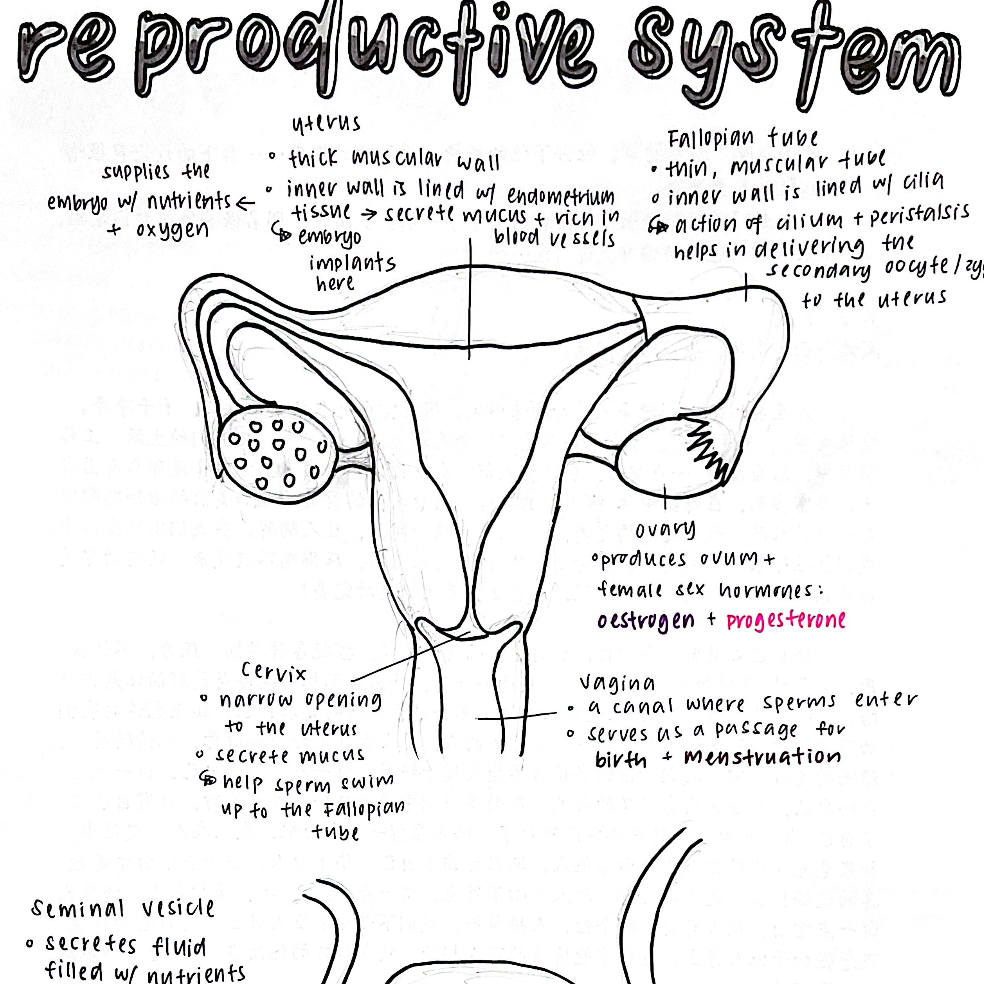 reproductive system
uterus
• thick muscular wall
• inner wall is lined w/ endometrium
tissue → secrete mucus + rich in
blood vessels
↪ embryo
implants
here
supplies the
embryo w/ nutrients ←
+ oxygen
Fallopian tube
• thin, muscular tube
• inner wall is lined w/ cilia
↪ action of cilium + peristalsis
helps in delivering the
secondary oocyte/zy
to the uterus
ovary
• produces ovum +
female sex hormones:
oestrogen + progesterone
cervix
• narrow opening
to the uterus
• secrete mucus
↪ help sperm swim
up to the Fallopian
tube
vagina
• a canal where sperms enter
• serves as a passage for
birth + menstruation
seminal vesicle
• secretes fluid
filled w/ nutrients